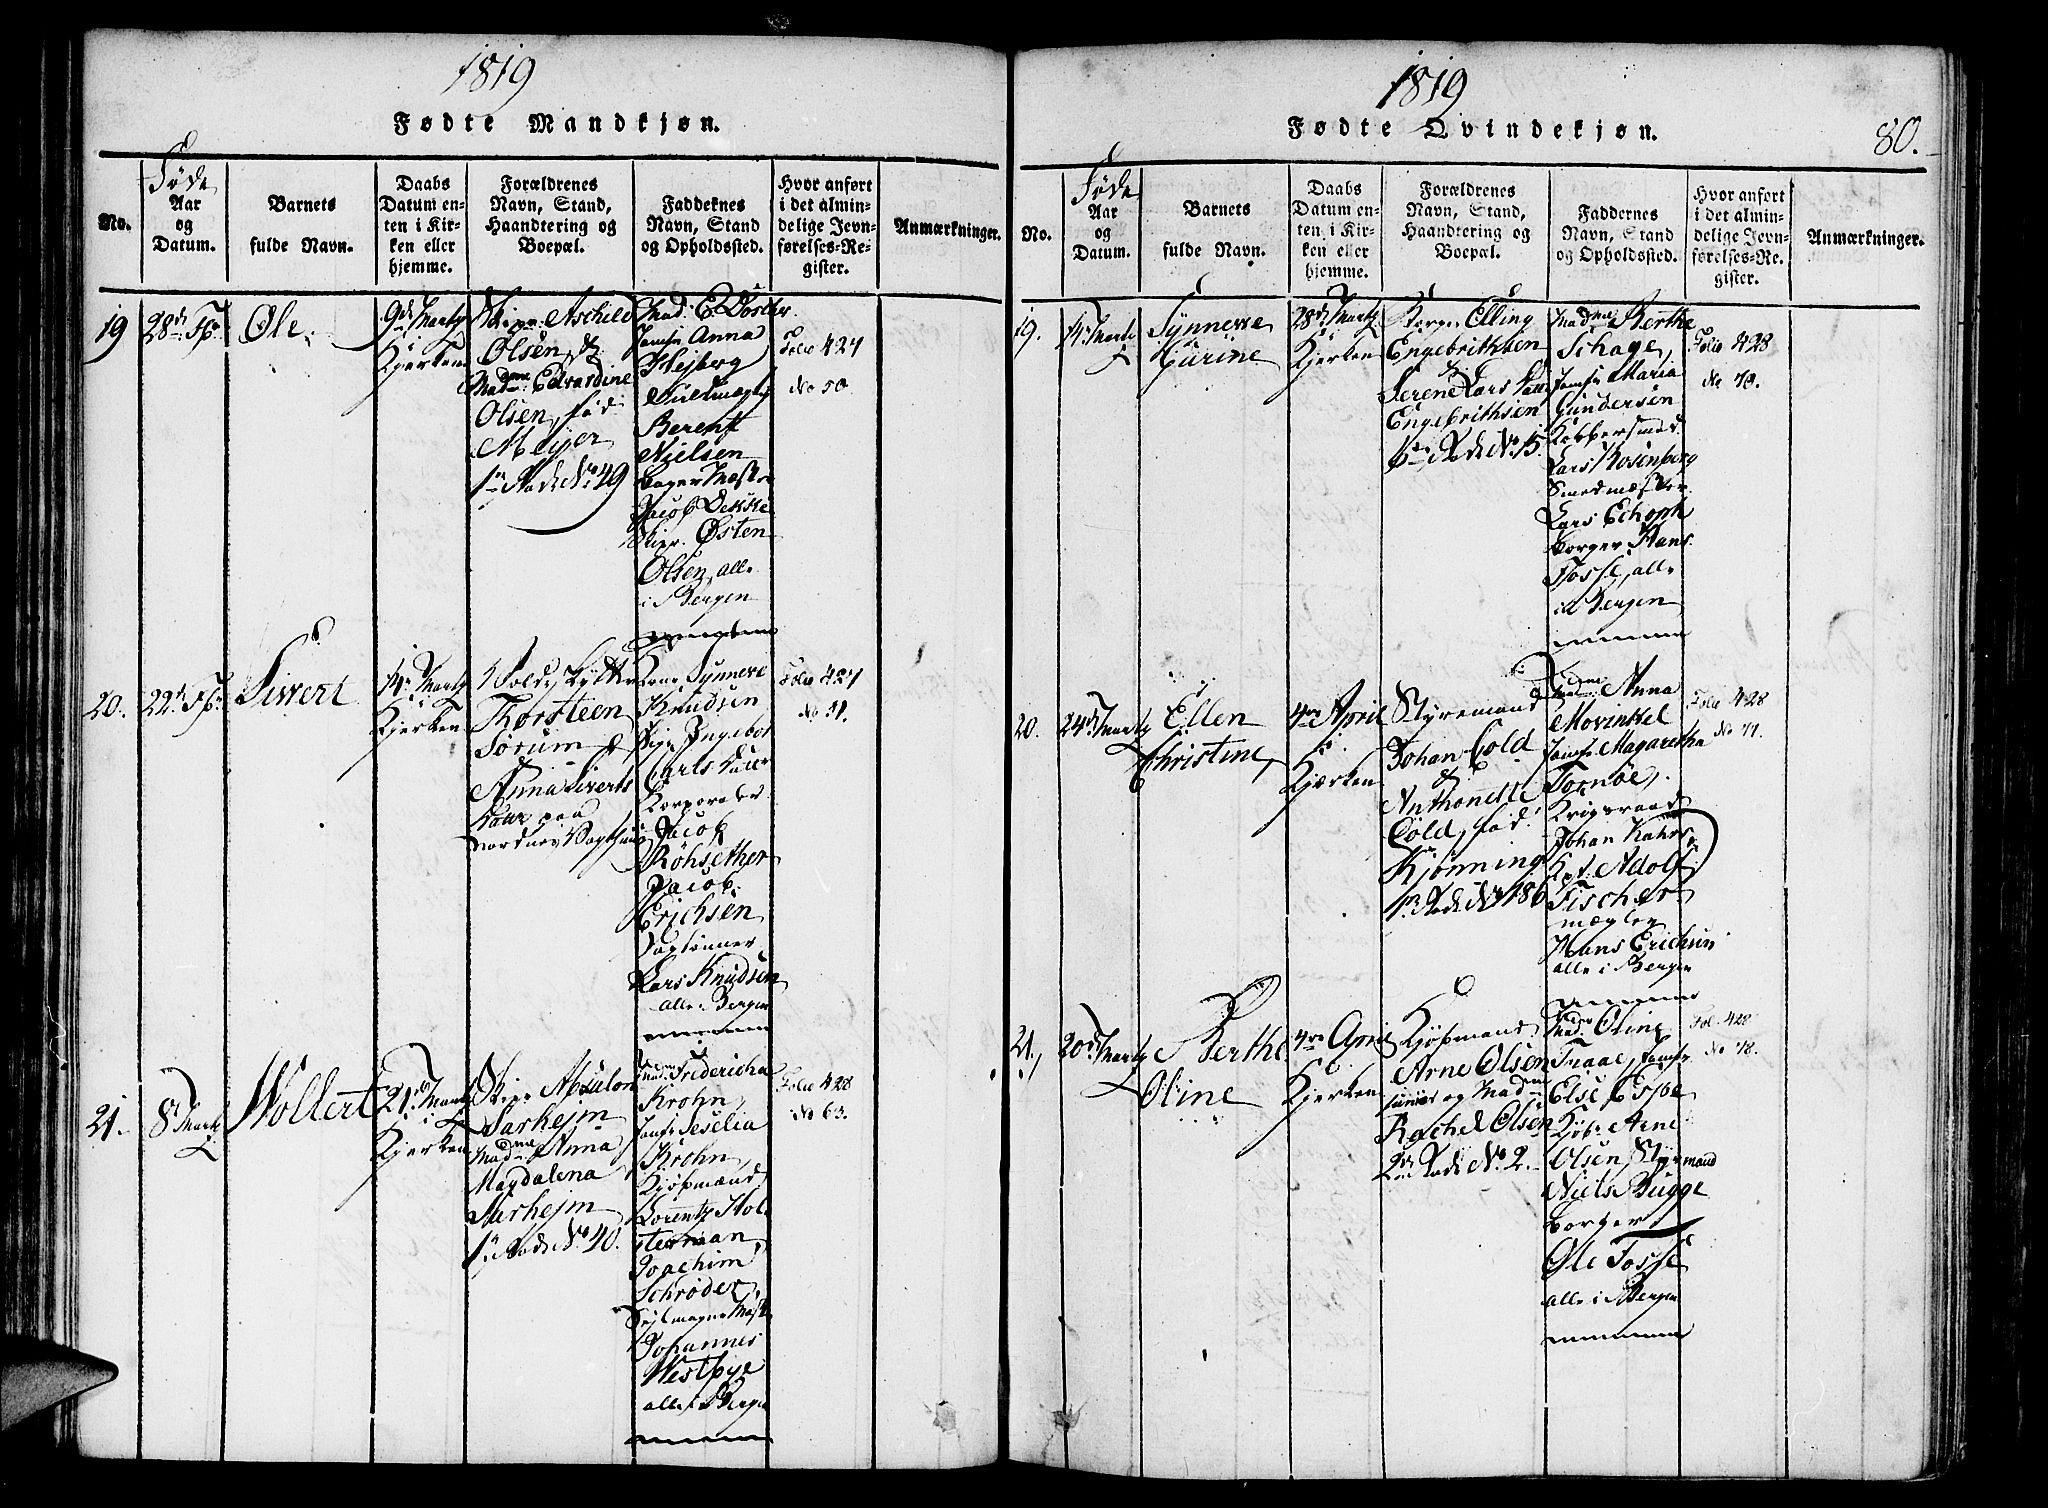 1819
Fødte Mandkjøn.
No.
Føde
Aar
og
Datum.
Barnets
fulde Navn.
Daabs
Datum en-
ten i Kir-
ken eller
hjemme.
Forældrenes
Navn, Stand,
Haandtering og
Boepæl.
Faddernes
Navn, Stand
og Opholdssted.
Hvor anført
i det almin-
delige Jevn-
førelses-Re-
gister.
Anmærkninger.
19
Ole
Kjerken
Aschild
Olsen &
Edvardine
Olsen, fød
Meyer
No 49
Mad: E Döscher
Jomfr Anna
Hejberg
Berent
Nielsen
Jacob Dekke
Skipr. Østen
Olsen, alle
i Bergen
Folio 427
No 50
20.
Sivert
Kjerken
Thorsteen
Sørum &
Anna Siverts
Synneve
Knudsen
Pige Ingebor
Carls
Jacob
Röhsether
Jacob
Erichsen
Lars Knudsen
alle i Bergen
Folio 427
No 51.
21.
8 Marti
Wollert
21 Marti
i
Kjerken
Skipr Absalon
Sarhejm
Madme Anna
Magdalena
Sarhejm
No 40.
Fredericha
Krohn,
Jomfr Seselia
Krohn,
Kjøpmænd
Lorentz Hol-
terman,
Joachim
Schrøder,
Johannes
Westbye
alle i Bergen
Folio 428
No 63.
1819
Fødte Qvindekjøn.
80.
No.
Føde
Aar
og
Datum.
Barnets
fulde Navn.
Daabs
Datum en-
ten i Kir-
ken eller
hjemme.
Forældrenes
Navn, Stand,
Haandtering og
Boepæl.
Faddernes
Navn, Stand
og Opholdssted.
Hvor anført
i det almin-
delige Jevn-
førelses-Re-
gister.
Anmærkninger.
19.
Synneve
Gurine
28de Marti
i
Kjerken
Borger Elling
Engebrithsen
&
Serene Lars
Engebrithsen
No 15.
Madme Berthe
Schage,
Jomfr Maria
Gundersen
Kobbersmed
Lars Rosenberg
Smedmester
Lars Echoph
Borger Hans
Fosse, alle
i Bergen
Folio 428
No 70.
20.
24de Marti
Ellen
Christine,
4de April
i
Kjærken
Styremand
Johan Cold
&
Anthonette
Cold, fød
Kjønning
No 186
Madme Anna
Movinkel
Jomfr Magaretha
Tornöe,
Krigsraad
Johan Kahrs
Kpt. Adolf
Fischer
mægler
Hans Erichsen
alle i Bergen
Folio 428
No 71.
21.
20de Marti
Berthe
Oline
4de April
i
Kjerken
Kjøpmand
Arne Olsen
junior og Madme
Rachel Olsen
2de Rode No 2.
Mad. Oline
Traae, Jomfr
Else Espe
Kjøbm Arne
Olsen, Styrmand
Niels Bugge
Borger
Ole Fosse
alle i Bergen
Fol. 428
No 78.